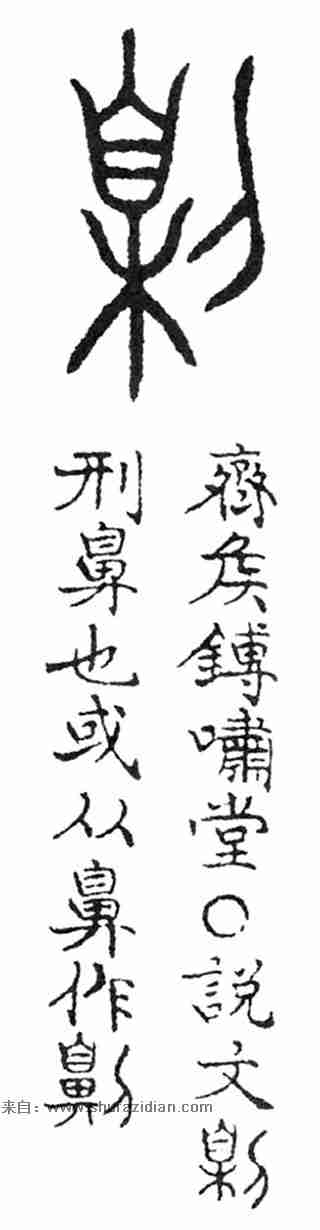 劓
齊侯鎛嘯堂〇説文劓
刑鼻也或从鼻作劓
来自：www.shufazidian.com